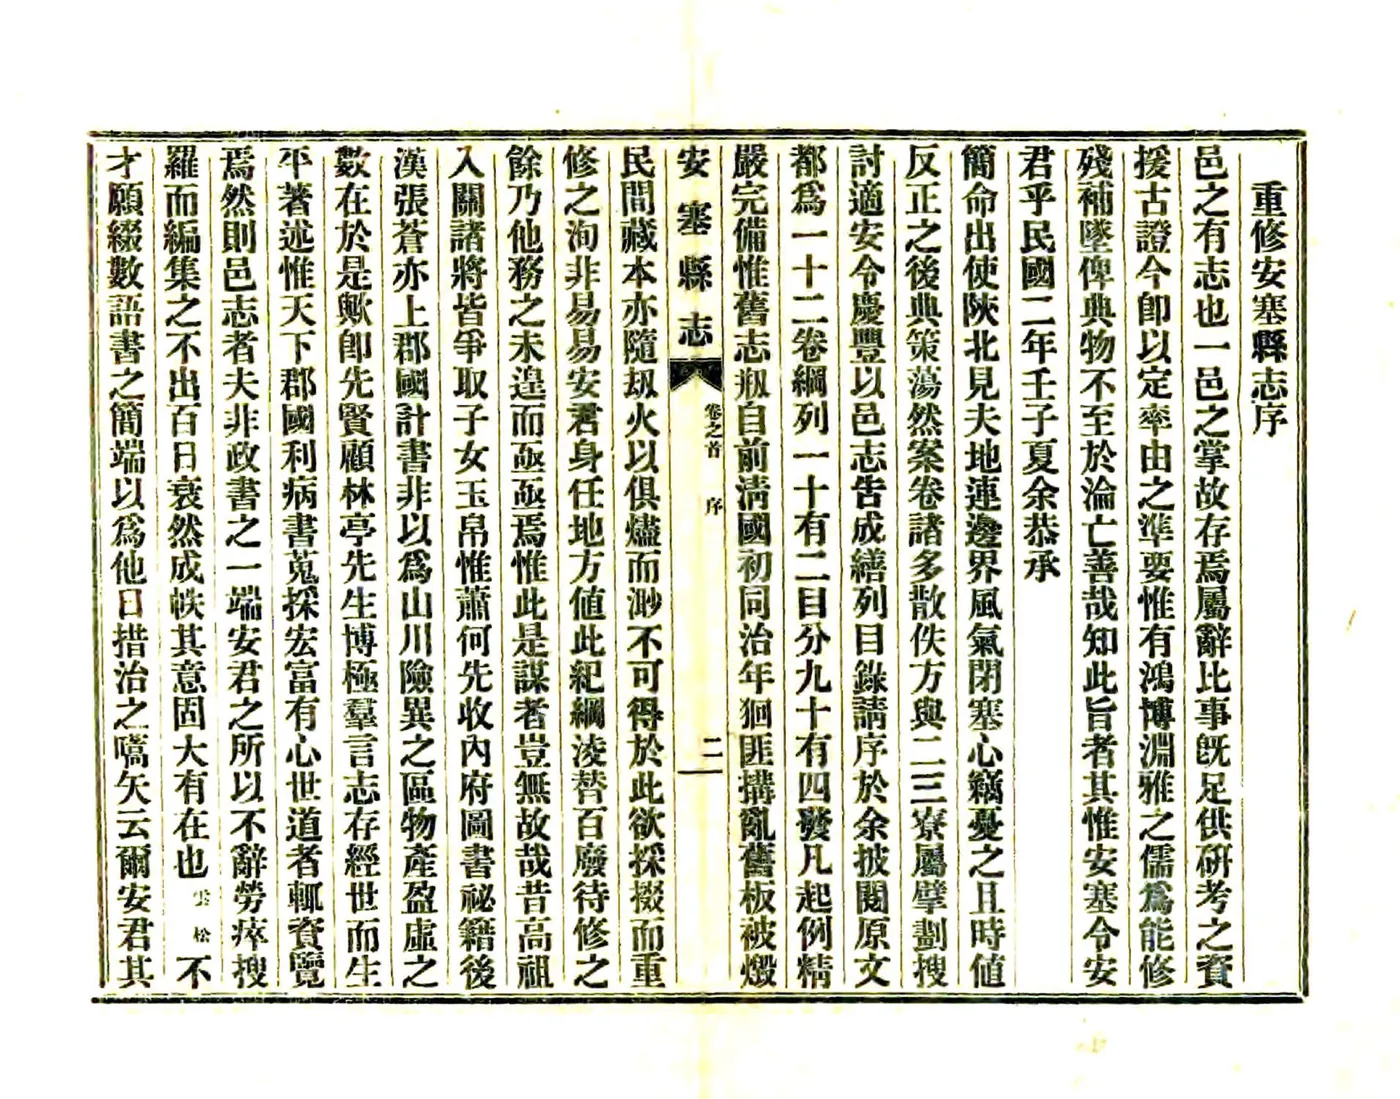 重修安塞縣志序
邑之有志也一邑之掌故存焉屬辭比事旣足供硏考之資
援古證今卽以定率由之準要惟有鴻博淵雅之儒爲能修
殘補墜俾典物不至於淪亡善哉知此旨者其惟安塞令安
君乎民國二年壬子夏余恭承
簡命出使陝北見夫地連邊界風氣閉塞心竊憂之且時値
反正之後典策蕩然案卷諸多散佚方與二三寮屬擘劃搜
討適安令慶豐以邑志告成繕列目錄請序於余披閱原文
都爲一十二卷綱列一十有二目分九十有四發凡起例精
嚴完備惟舊志刱自前淸國初同治年狪匪搆亂舊板被燬
安塞縣志
卷之首 序
二
民間藏本亦隨刼火以俱燼而渺不可得於此欲採掇而重
修之洵非易易安君身任地方値此紀綱淩替百廢待修之
餘乃他務之未遑而亟亟焉惟此是謀者豈無故哉昔高祖
入關諸將皆爭取子女玉帛惟蕭何先收內府圖書祕籍後
漢張蒼亦上郡國計書非以爲山川險異之區物產盈虛之
數在於是歟卽先賢顧林亭先生博極羣言志存經世而生
平著述惟天下郡國利病書蒐採宏富有心世道者輒資覽
焉然則邑志者夫非政書之一端安君之所以不辭勞瘁搜
羅而編集之不出百日裒然成帙其意固大有在也雲松不
才願綴數語書之簡端以爲他日措治之嚆矢云爾安君其